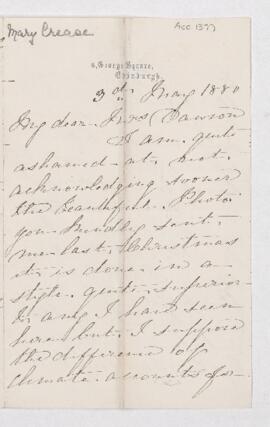 Mary Crease
Acc 1377
8, George Square,
Edinburgh.
3rd May 1880
My dear Mrs Dawson
I am quite
ashamed at not
acknowledging sooner
the beautiful Photo
you kindly sent
me last Christmas
it is done in a
style quite superior
to any I have seen
here but I suppose
the difference of
climate accounts for